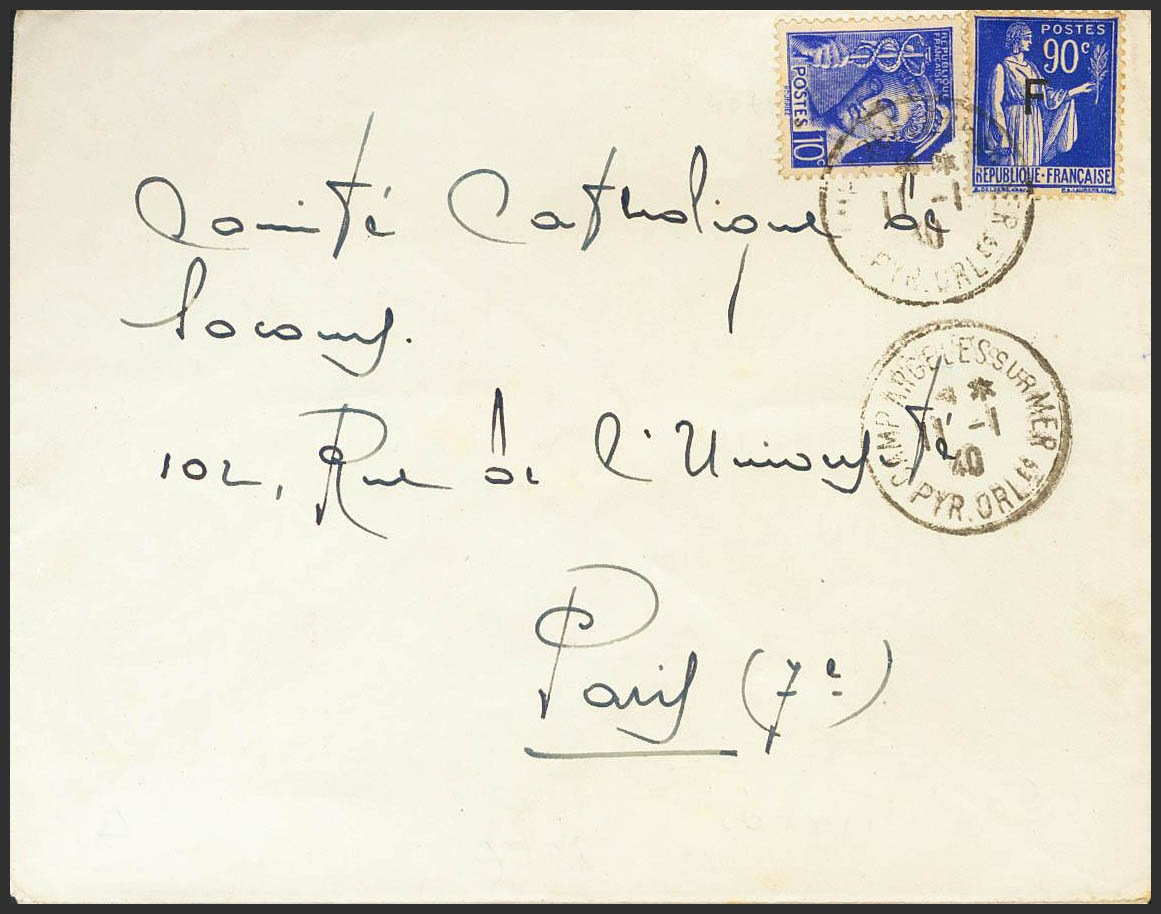 REPUBLIQUE
FRANÇAISE
POSTES
10c
POSTES
90c
F
REPUBLIQUE·FRANÇAISE
Comité Catholique de
Secours.
102, Rue de l'Université
Paris (7e)
MER
11 -1
40
PYR. ORLES
CAMP ARGELES-SUR-MER
11 -1
40
PYR. ORLES